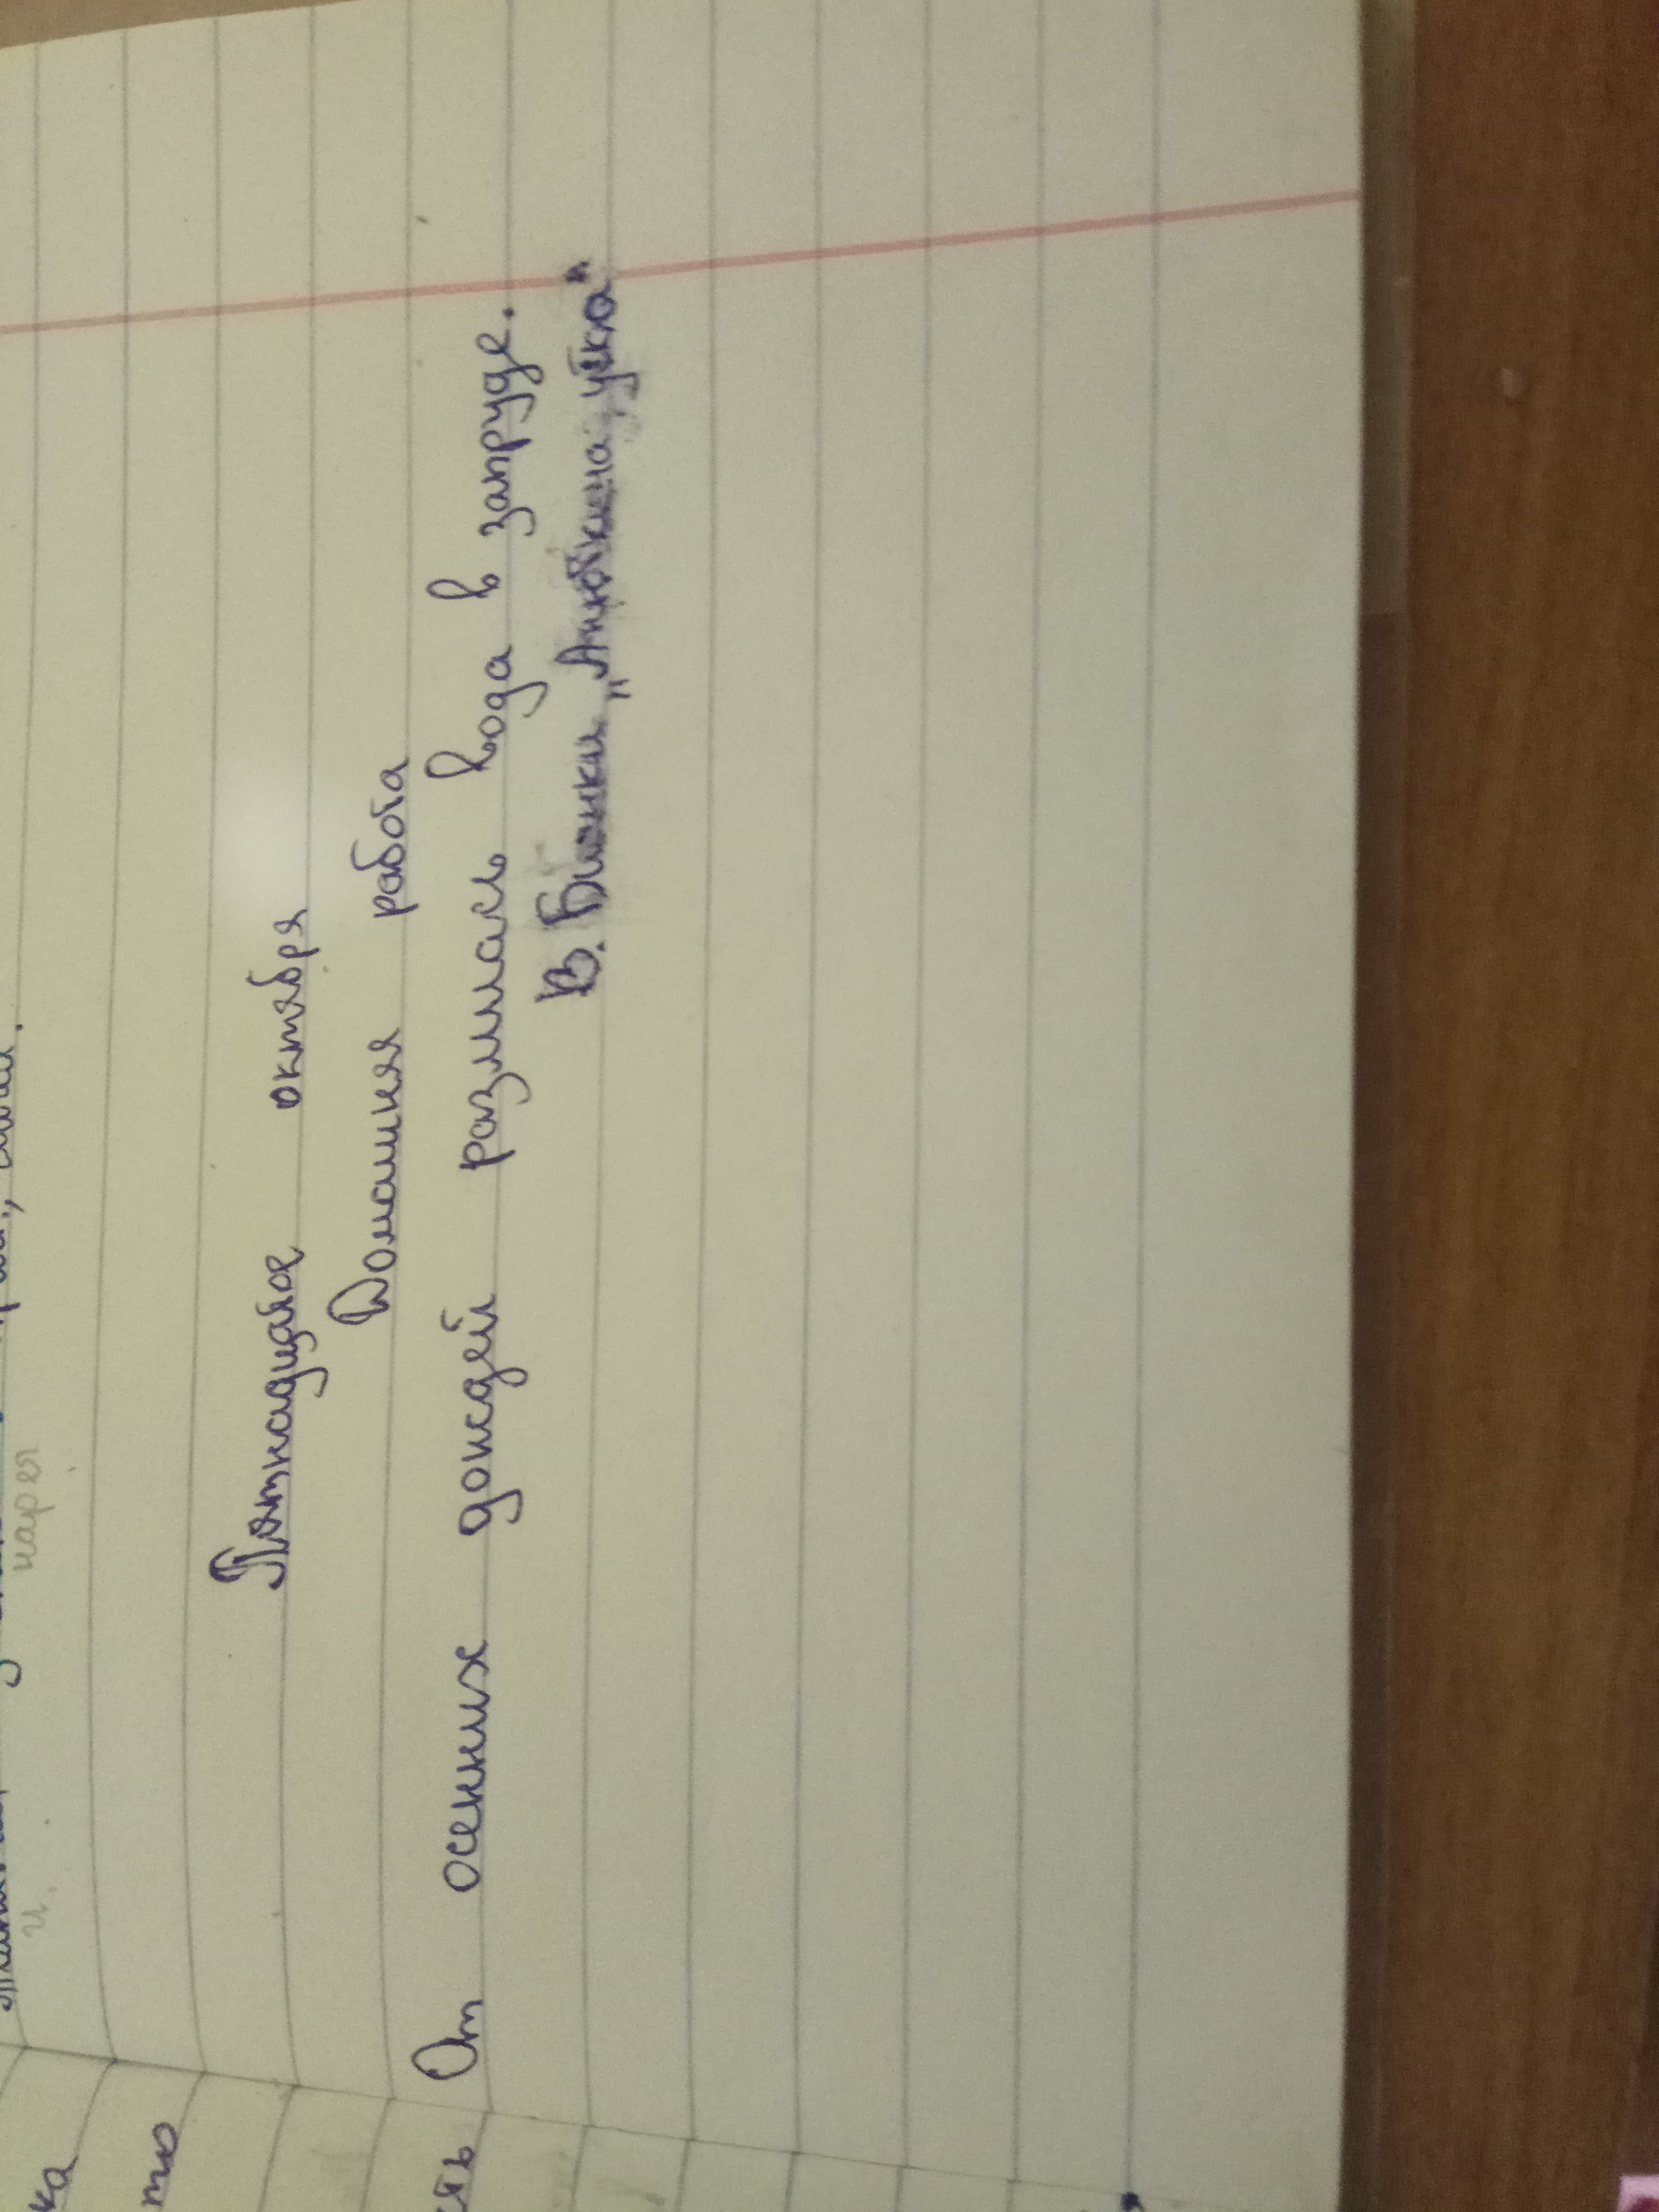 наред
и.
Пятнадцатое октября
Домашня работа
ка
тю
От осенних дождей разлилась вода в запруде.
ять
В. Бианки „Анюткина утка"